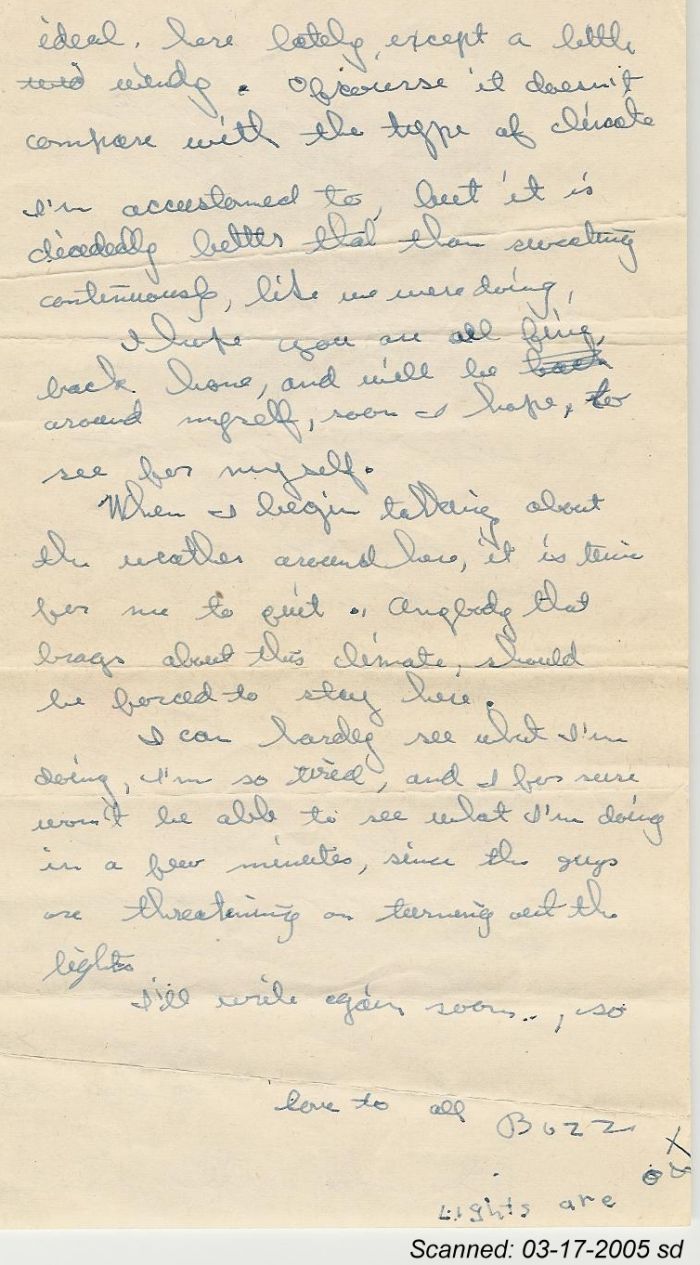 ideal, here lately, except a little
windy. Ofcourse it doesn't
compare with the type of climate
I'm accustomed to, but it is
decidedly better that than sweating
continuously, like we were doing,
I hope you are all fine,
back home, and will be back
around myself, soon I hope, to
see for myself.
When I begin talking about
the weather around here, it is time
for me to quit. Anybody that
brags about this climate, should
be forced to stay here.
I can hardly see what I'm
doing, I'm so tired, and I for sure
won't be able to see what I'm doing
in a few minutes, since the guys
are threatening on turning out the
lights
I'll write again soon.., so
love to all
Buzz
X
Lights are out
Scanned: 03-17-2005 sd